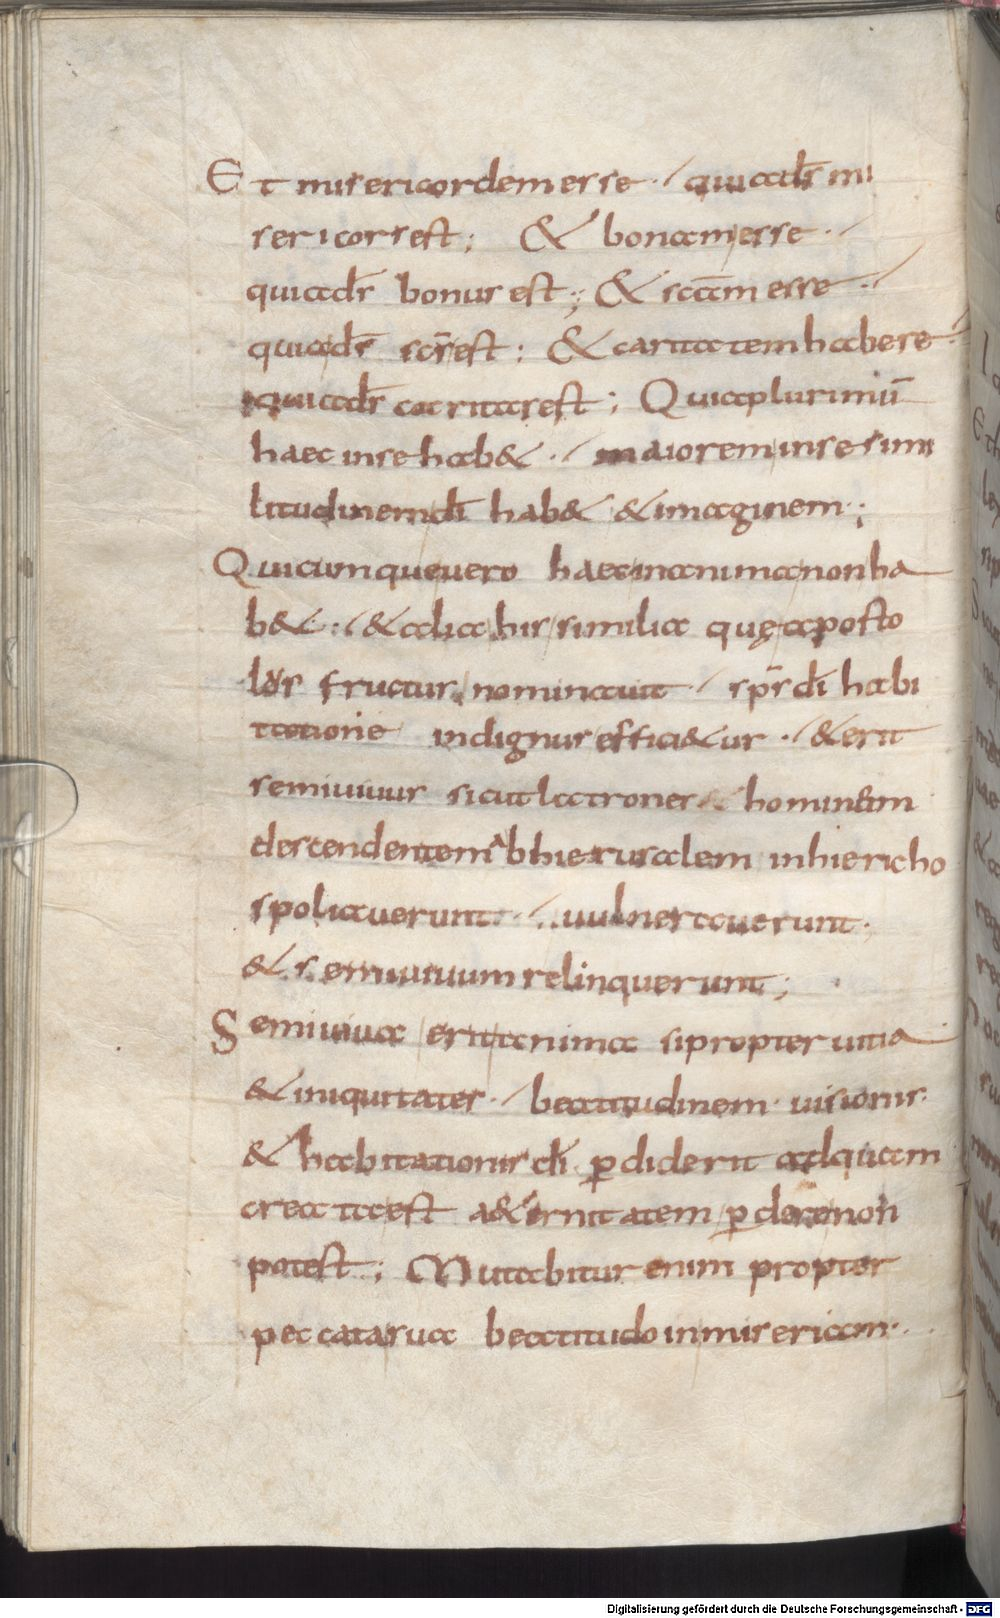 Et misericordem esse · quia ds̄ mi
sericors est; & bonam esse ·
quia ds̄ bonus est; & scām esse ·
quia ds̄ scs̄ est; & caritatem habere ·
quia ds̄ caritas est; Quia plurimū
haec in se hab& · maiorem in se simi
litudinem dī hab& & imaginem;
Quicumque vero haec in anima non ha
b& · & alia his similia quę aposto
lus fructus nominavit · sp̄s dī habi
tatione indignus effici&ur · & erit
semivivus sicut latrones hominem
descendentem ab hierusalem in hiericho
spoliaverunt · vulneraverunt ·
& semivivum relinquerunt;
Semiviva erit anima si propter vitia
& iniquitates · beatitudinem visionis
& habitationis dī p̱diderit ad quam
creata est a&ernitatem p̱dere non
potest; Mutabitur enim propter
peccata sua beatitudo in miseriam ·
Digitalisierung gefördert durch die Deutsche Forschungsgemeinschaft - DFG